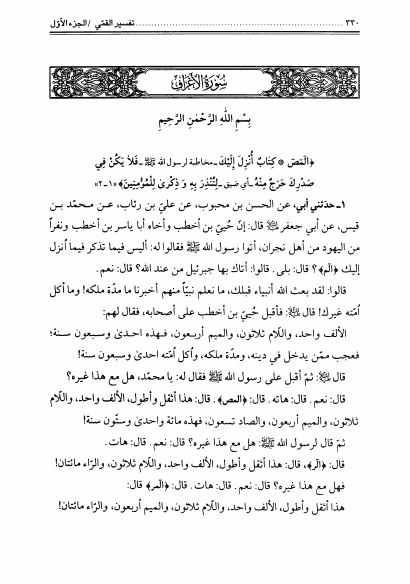 ٣٣٠ ........................................................ تفسير القمّي / الجزء الأوّل
سُورَةُ الأَعْرَافِ
بِسْمِ اللَّهِ الرَّحْمٰنِ الرَّحِيمِ
﴿الٓمٓصٓ * كِتَابٌ أُنْزِلَ إِلَيْكَ ـ مخاطبة لرسول الله ﷺ ـ فَلاَ يَكُنْ فِي
صَدْرِكَ حَرَجٌ مِنْهُ ـ أي ضيق ـ لِتُنْذِرَ بِهِ وَ ذِكْرىٰ لِلْمُؤْمِنِينَ﴾ «١ـ٢»
١ـ حدّثني أبي، عن الحسن بن محبوب، عن عليّ بن رئاب، عن محمّد بن
قيس، عن أبي جعفر ﵇ قال: إنّ حُيَيّ بن أخطب وأخاه أبا ياسر بن أخطب ونفراً
من اليهود من أهل نجران، أتوا رسول الله ﷺ فقالوا له: أليس فيما تذكر فيما اُنزل
إليك ﴿الٓمٓ﴾؟ قال: بلى. قالوا: أتاك بها جبرئيل من عند الله؟ قال: نعم.
قالوا: لقد بعث الله أنبياء قبلك، ما نعلم نبيّاً منهم أخبرنا ما مدّة ملكه! وما أكل
اُمّته غيرك! قال ﵇: فأقبل حُيَيّ بن أخطب على أصحابه، فقال لهم:
الألف واحد، واللّام ثلاثون، والميم أربعون، فهذه احدىٰ وسبعون سنة؛
فعجب ممّن يدخل في دينه، ومدّة ملكه، واُكل اُمّته احدىٰ وسبعون سنة!
قال ﵇: ثمّ أقبل على رسول الله ﷺ فقال له: يا محمّد، هل مع هذا غيره؟
قال: نعم. قال: هاته. قال: ﴿المص﴾. قال: هذا أثقل وأطول، الألف واحد، واللّام
ثلاثون، والميم أربعون، والصاد تسعون، فهذه مائة واحدىٰ وستّون سنة!
ثمّ قال لرسول الله ﷺ: هل مع هذا غيره؟ قال: نعم. قال: هات.
قال: ﴿الٓر﴾، قال: هذا أثقل وأطول، الألف واحد، واللّام ثلاثون، والرّاء مائتان!
فهل مع هذا غيره؟ قال: نعم. قال: هات. قال: ﴿الٓمر﴾ قال:
هذا أثقل وأطول، الألف واحد، واللّام ثلاثون، والميم أربعون، والرّاء مائتان!